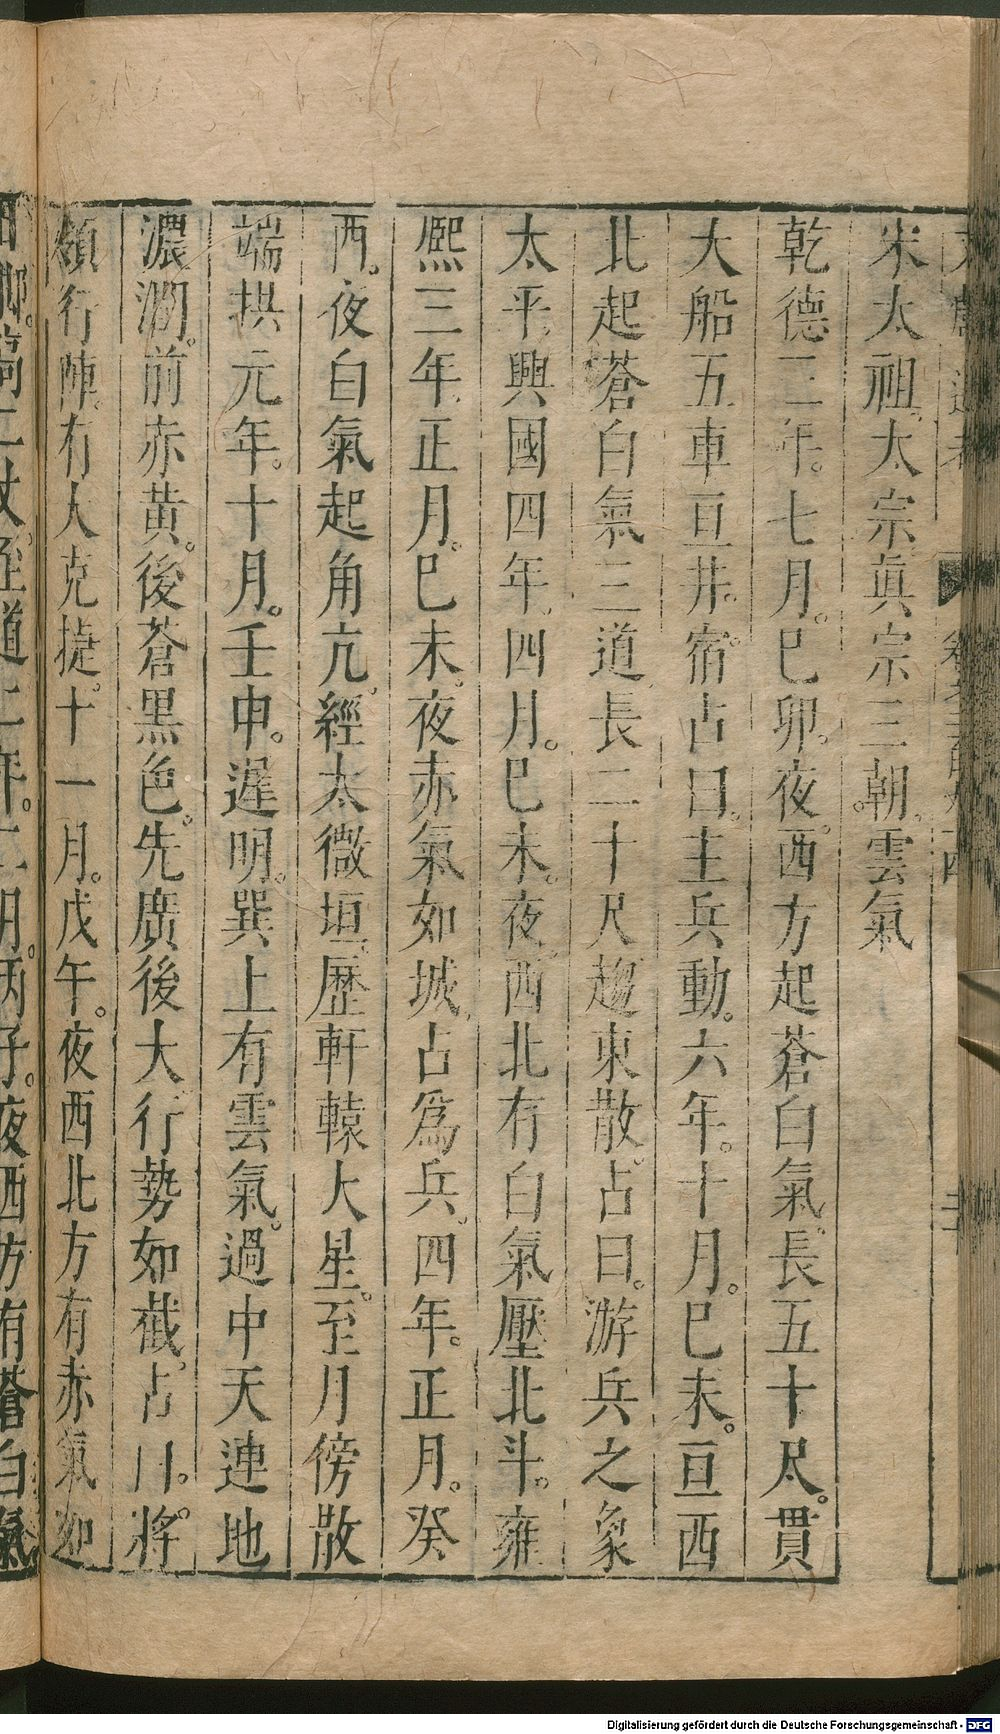 宋太祖太宗眞宗三朝雲氣
乾德三年七月巳卯夜西方起蒼白氣長五十尺貫
大船五車亘井宿占曰主兵動六年十月巳未亘西
北起蒼白氣三道長二十尺趨東散占曰游兵之象
太平興國四年四月巳未夜西北有白氣壓北斗雍
熈三年正月巳未夜赤氣如城占爲兵四年正月癸
酉夜白氣起角亢經太微垣歷軒轅大星至月傍散
端拱元年十月壬申遲明巽上有雲氣過中天連地
濃潤前赤黄後蒼黒色先廣後大行勢如截占曰將
頻行陣有大克捷十一月戊午夜西北方有赤氣如
二年二月丙子夜西方有蒼白氣
Digitalisierung gefördert durch die Deutsche Forschungsgemeinschaft - DFG